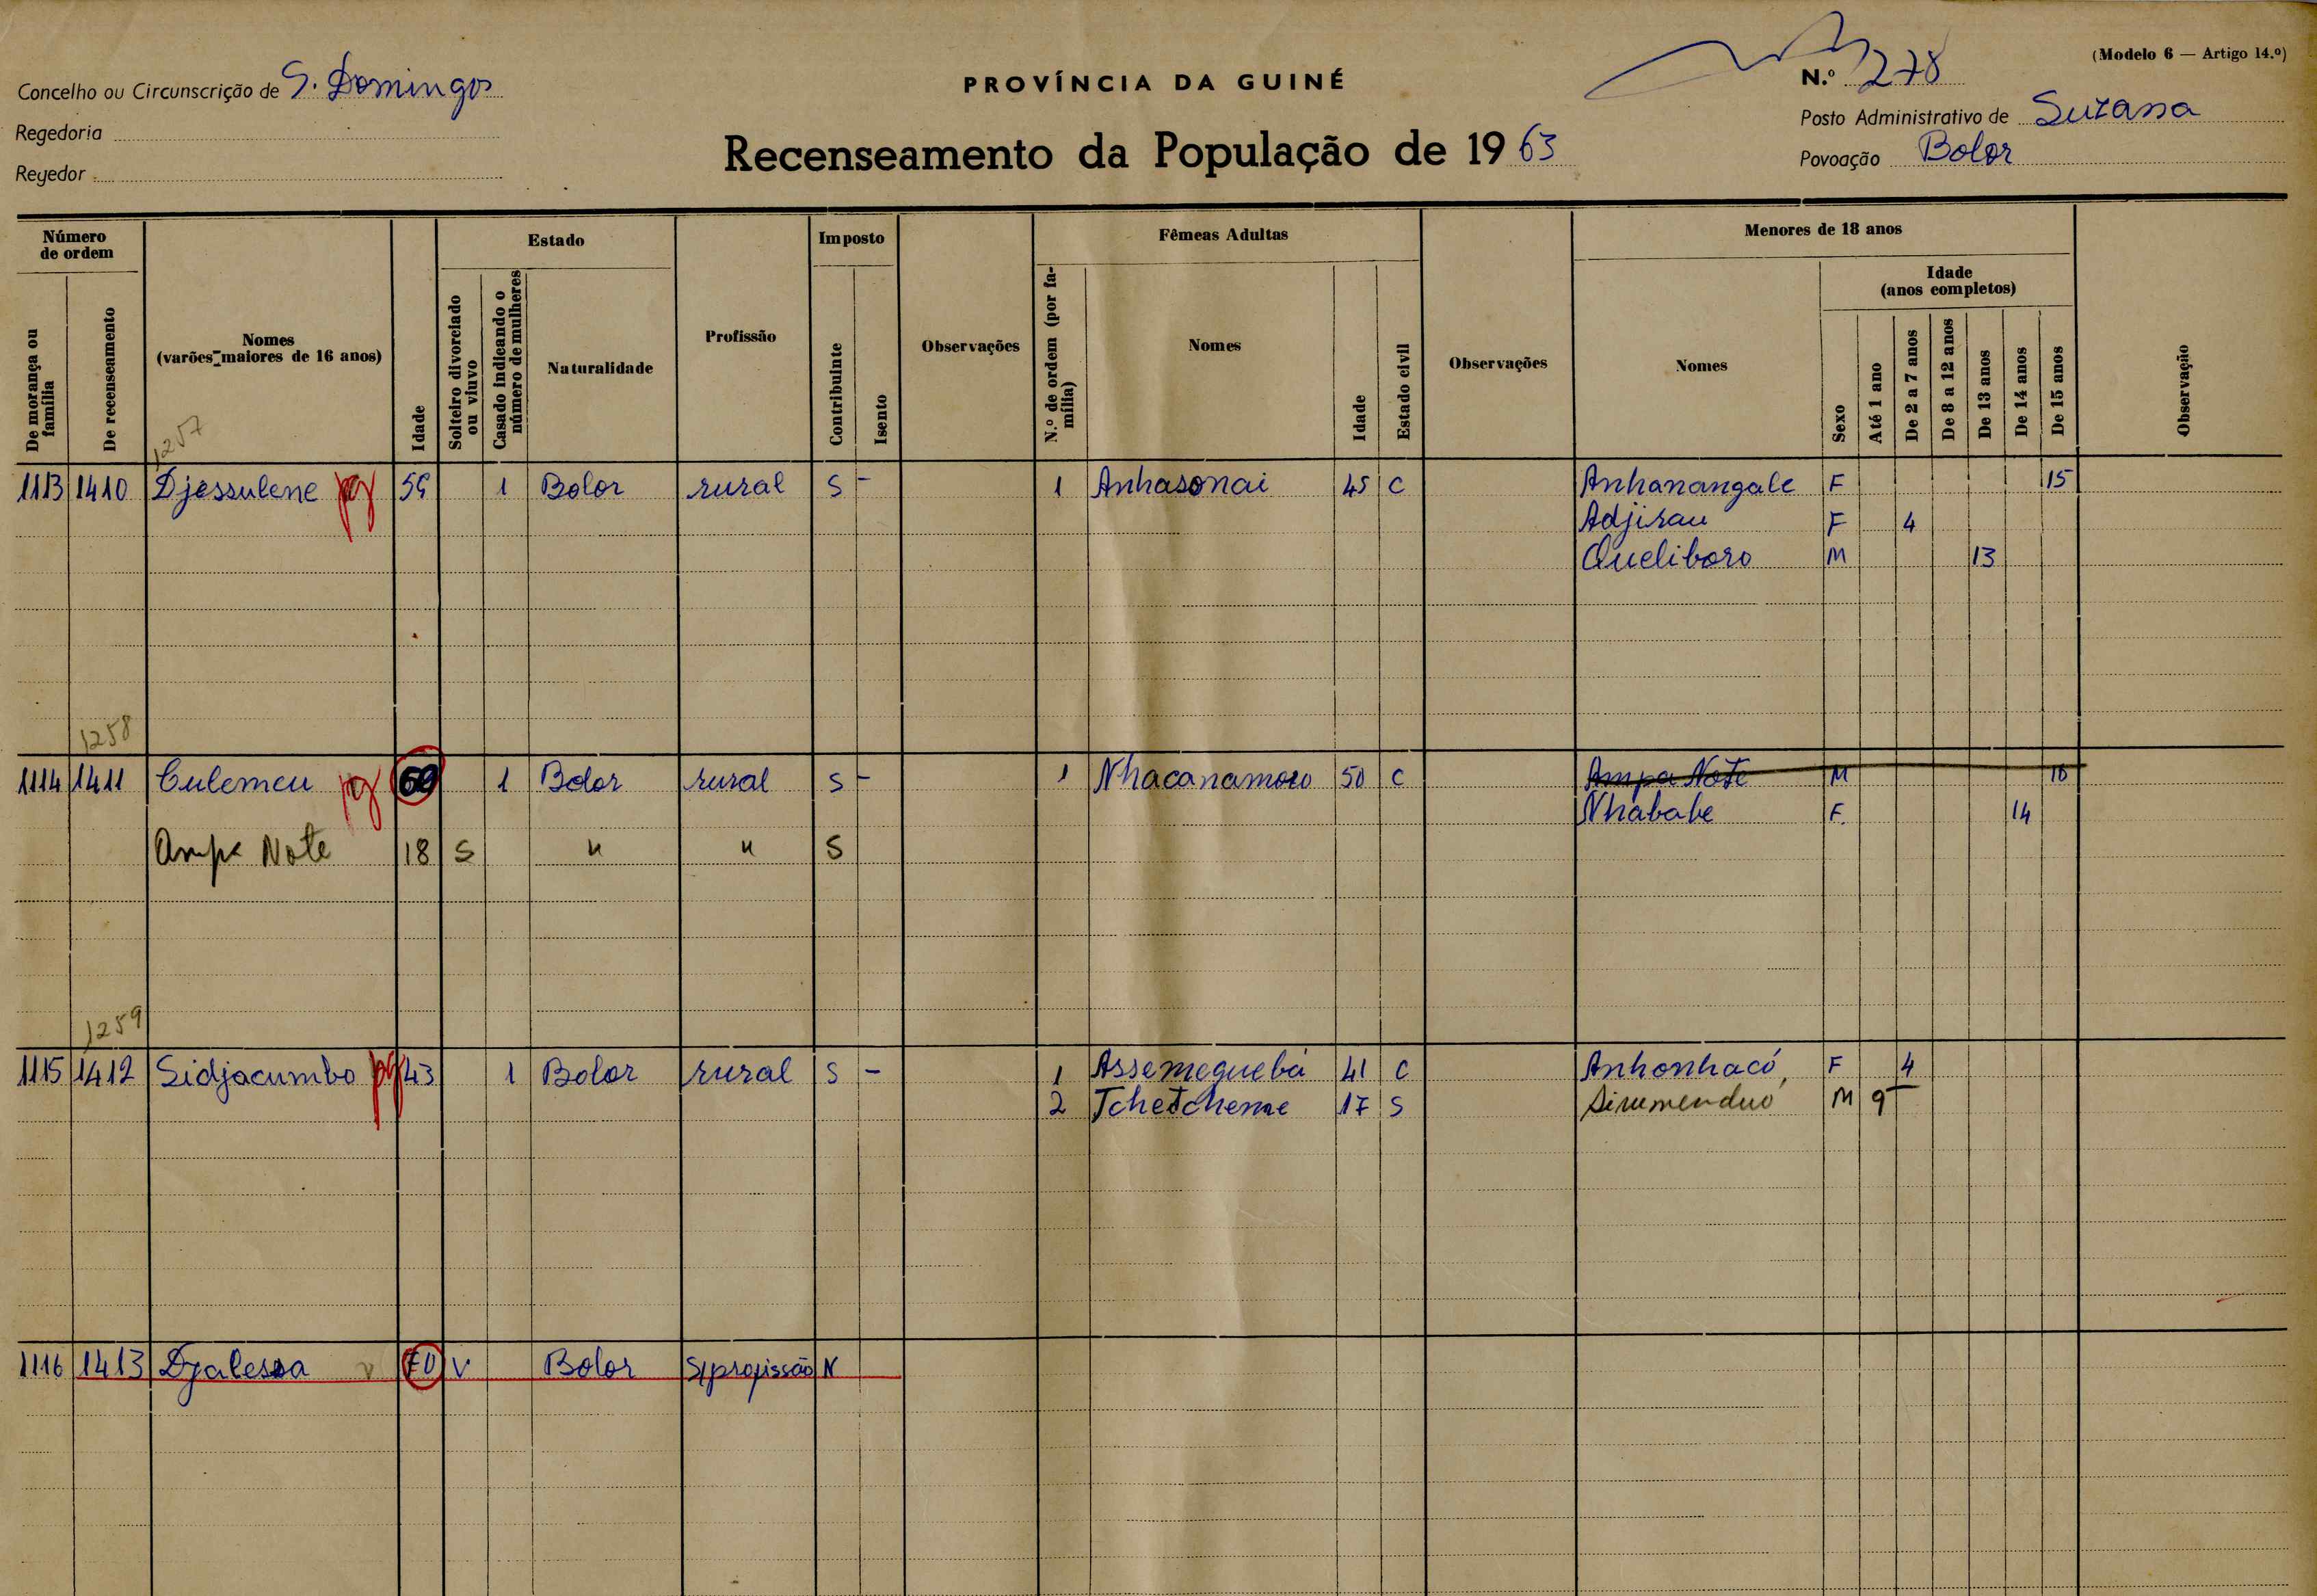 (Modelo 6 — Artigo 14.º)
Concelho ou Circunscrição de S. Domingos
PROVÍNCIA DA GUINÉ
N.º 278
Regedoria
Posto Administrativo de Suzana
Regedor
Recenseamento da População de 1963
Povoação Bolor
Número de ordem
Estado
Imposto
Fêmeas Adultas
Menores de 18 anos
De morança ou família
De recenseamento
Nomes
(varões maiores de 16 anos)
Idade
Solteiro divorciado ou viuvo
Casado indicando o número de mulheres
Naturalidade
Profissão
Contribuinte
Isento
Observações
N.º de ordem (por família)
Nomes
Idade
Estado civil
Observações
Nomes
Sexo
Idade
(anos completos)
Até 1 ano
De 2 a 7 anos
De 8 a 12 anos
De 13 anos
De 14 anos
De 15 anos
Observação
1257
1113 1410 Djessulene pg 1 Bolor rural S - 1 Anhasonai 45 C Anhanangale F 15
Adjirau F 4
Queliboro M 13
1258
1114 1411 Culemeu pg 60 1 Bolor rural S - 1 Nhacanamoro 50 C Ampa Note M
Nhababe F. 14
Ampa Note 18 S " " S
1259
1115 1412 Sidjacumbo pg 43 1 Bolor rural S - 1 Assemequebá 41 C Anhonhacó F 4
2 Tchetchene 17 S Sirumenduo M 9
1116 1413 Djalessa v 70 V Bolor S/profissão N